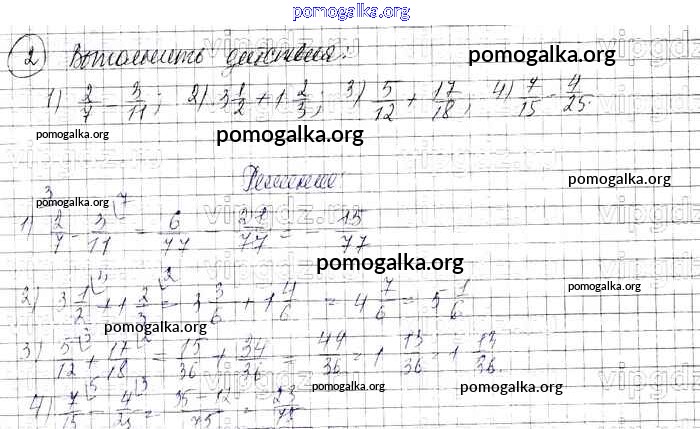 pomogalka.org
② Выполнить действия:
pomogalka.org
1) 2/7 - 3/11; 2) 3 1/2 + 1 2/3; 3) 5/12 + 17/18; 4) 7/15 - 4/25.
pomogalka.org
pomogalka.org
Решение:
pomogalka.org
pomogalka.org
1) 2/7 - 3/11 = 6/77 - 21/77 = - 15/77
pomogalka.org
2) 3 1/2 + 1 2/3 = 3 3/6 + 1 4/6 = 4 7/6 = 5 1/6
pomogalka.org
pomogalka.org
3) 5/12 + 17/18 = 15/36 + 34/36 = 44/36 = 1 13/36 = 1 13/36.
pomogalka.org
pomogalka.org
pomogalka.org
4) 7/15 - 4/25 = 35 - 12/75 = 23/75